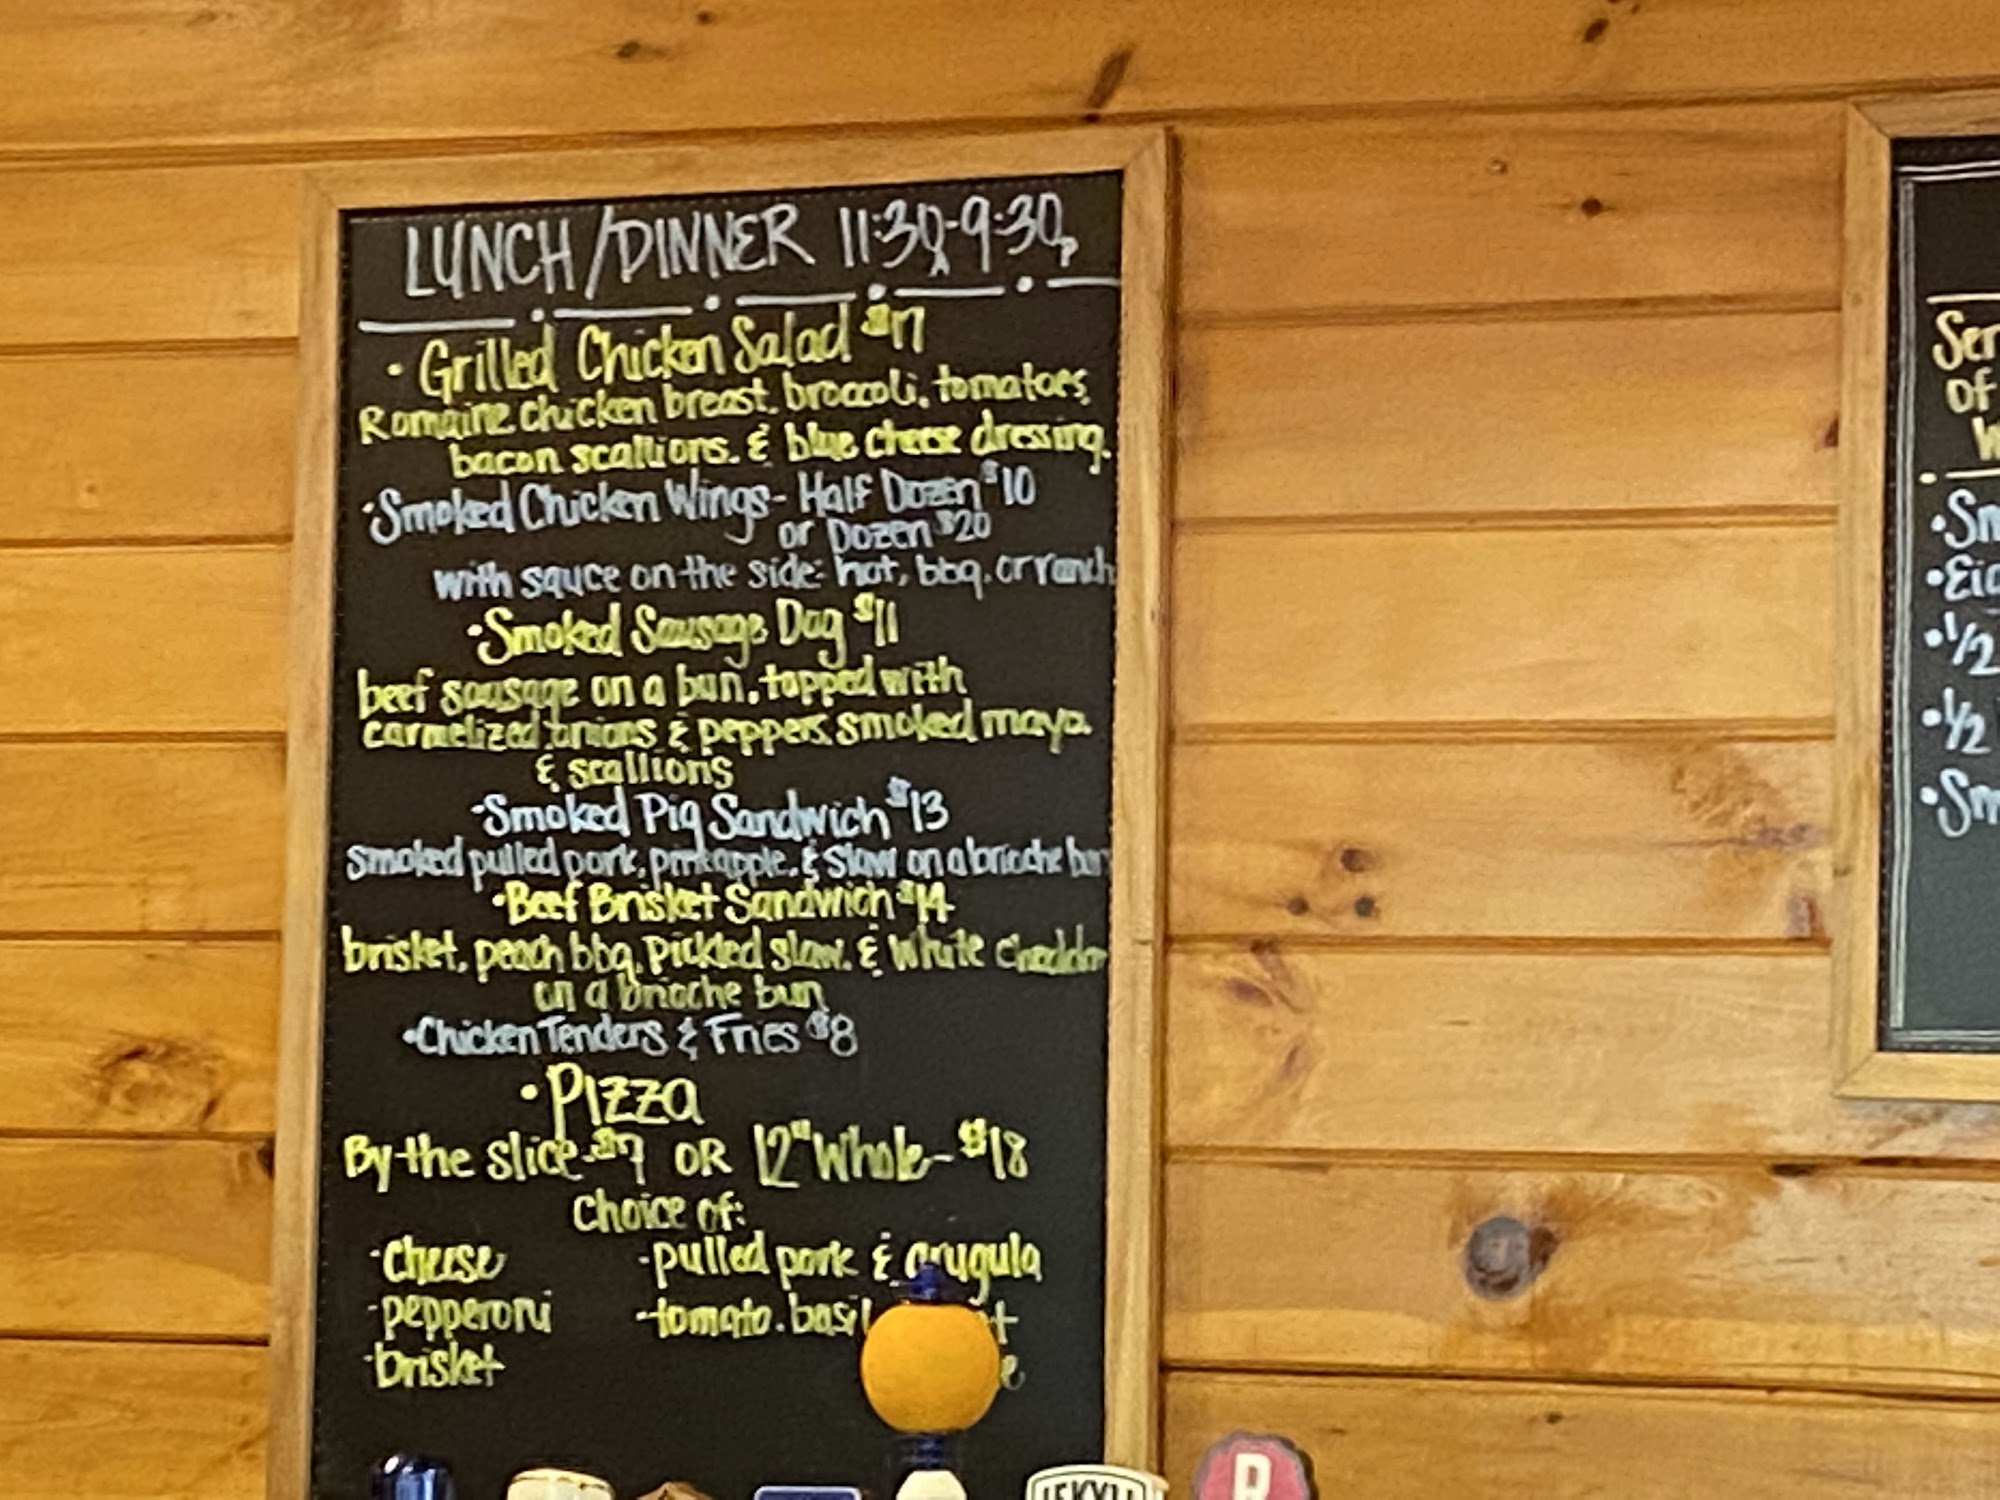 LUNCH/DINNER 11:30A-9:30P
• Grilled Chicken Salad $17
Romaine, chicken breast, broccoli, tomatoes,
bacon scallions, & blue cheese dressing.
•Smoked Chicken Wings- Half Dozen $10
or Dozen $20
with sauce on the side: hot, bbq, or ranch
•Smoked Sausage Dog $11
beef sausage on a bun, topped with
carmelized onions & peppers, smoked mayo
& scallions
•Smoked Pig Sandwich $13
smoked pulled pork, pineapple, & slaw on a brioche bun
•Beef Brisket Sandwich $14
brisket, peach bbq, pickled slaw, & white cheddar
on a brioche bun
•Chicken Tenders & Fries $8
•Pizza
By the slice-$7 OR 12" Whole-$18
Choice of:
-cheese -pulled pork & arugula
-pepperoni -tomato, basil
-brisket
Ser
Of
W
•Sm
•Eig
•1/2
•1/2
•Sm
JEKYLL
B